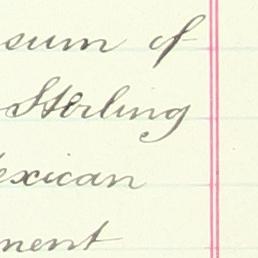 sum of
Sterling
exican
ment